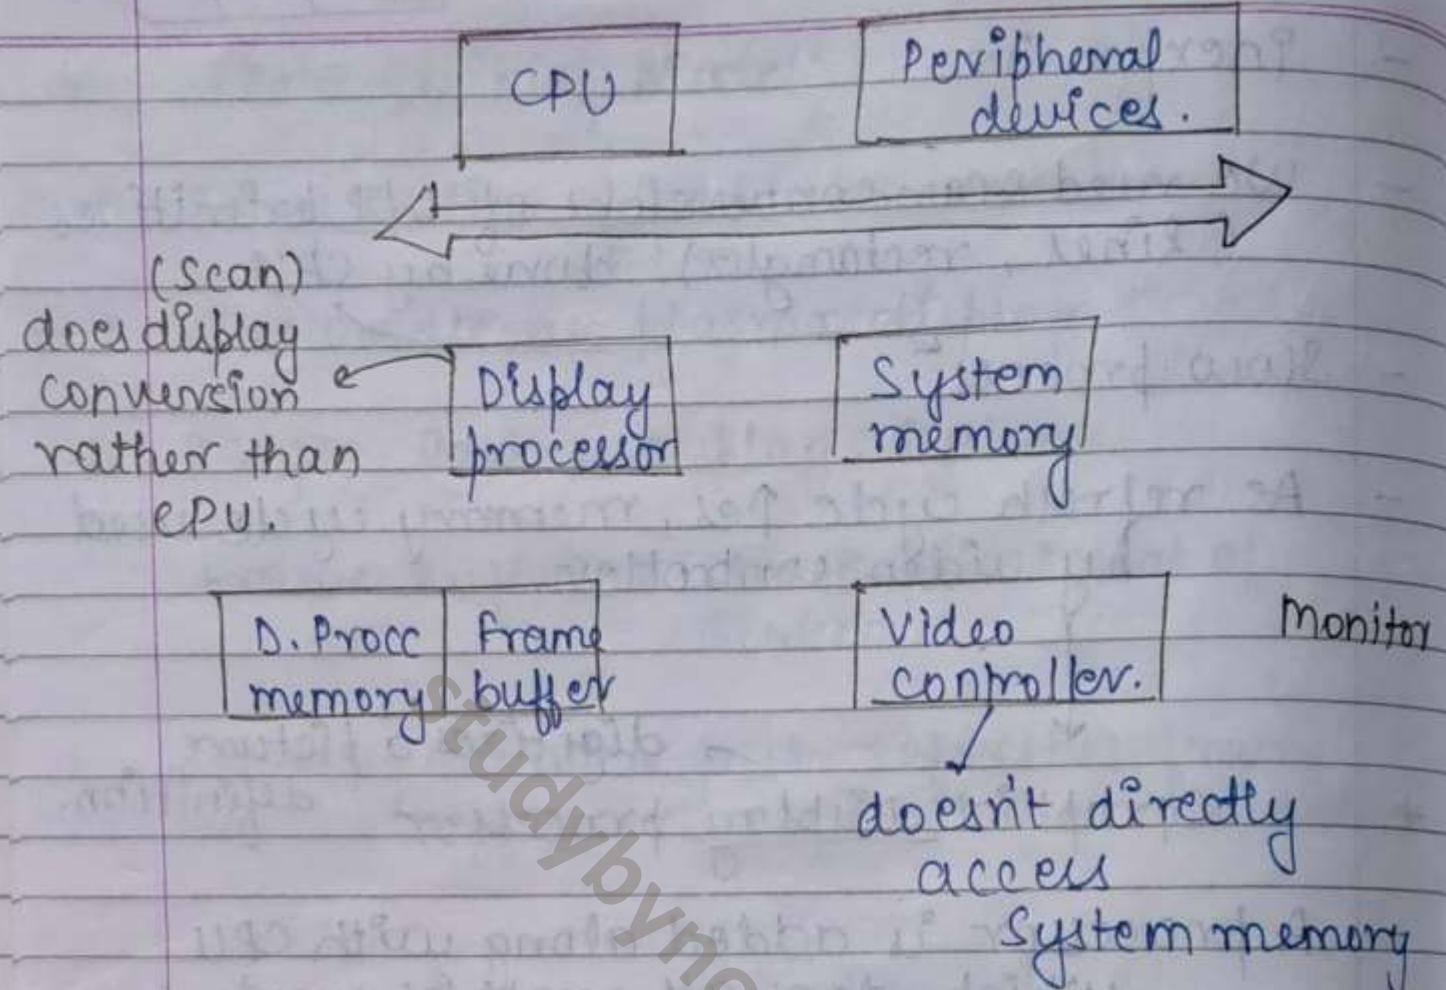 CPU
Peripheral
devices.
(scan)
does display
conversion
rather than
CPU.
Display
processor
System
memory
D. Procc
memory
Frame
buffer
Video
controller.
Monitor
doesn't directly
access
System memory